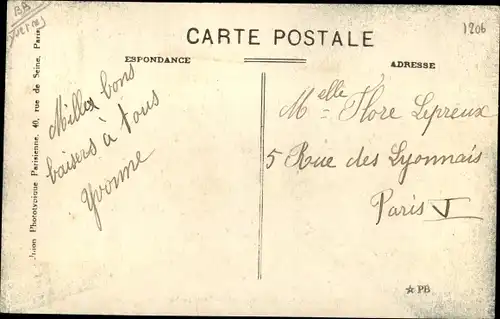 BB
1206
CARTE POSTALE
ESPONDANCE
ADRESSE
Mille bons
baisers à tous
Yvonne
Melle Flore Lepreux
5 Rue des Lyonnais
Paris V
Union Phototypique Parisienne, 40, rue de Seine, Paris
☆ PB